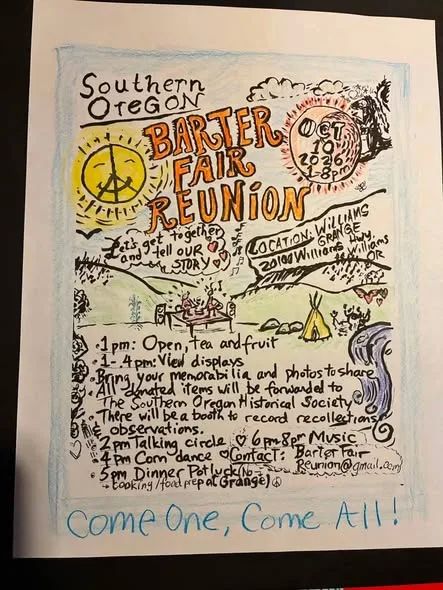 Southern
OREGON
BARTER
FAIR
REUNION
OCT
10
2026
1-8pm
Let's get together
and tell OUR
STORY
LOCATION: WILLIAMS
GRANGE
20100 Williams Hwy.
Williams
OR
• 1 pm: Open, tea and fruit
• 1-4 pm: View displays
• Bring your memorabilia and photos to share
All donated items will be forwarded to
The Southern Oregon Historical Society.
There will be a booth to record recollections,
observations.
• 2pm Talking circle
6pm-8pm Music
• 4pm Corn dance
Contact: Barter Fair
Reunion@gmail.com
• 5pm Dinner Potluck (No
cooking/food prep at Grange)
Come One, Come All!